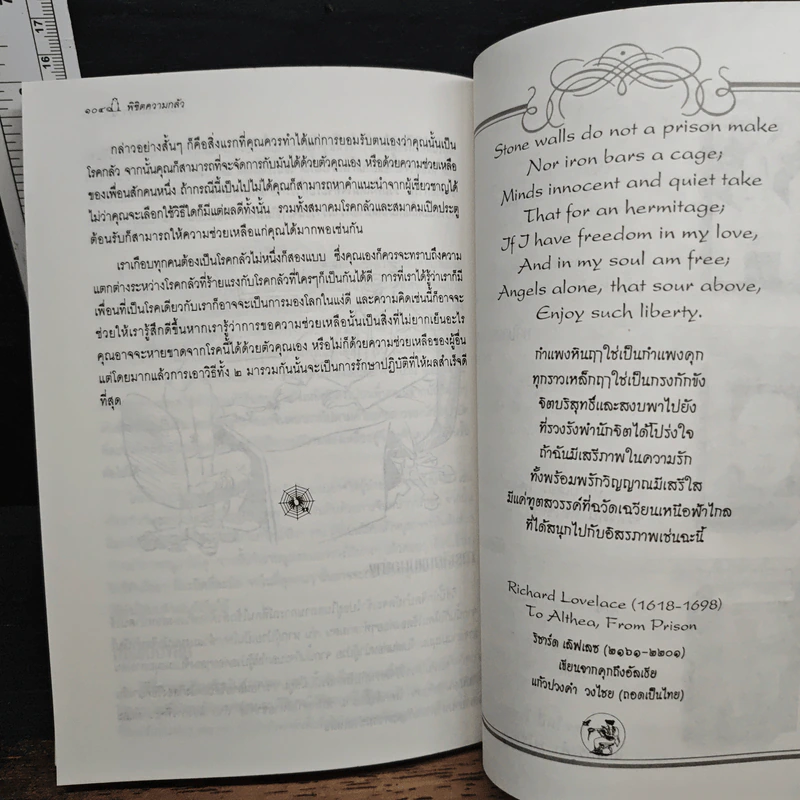 17
16
๑๐๔ พิชิตความกลัว
กล่าวอย่างสั้นๆ ก็คือสิ่งแรกที่คุณควรทำได้แก่การยอมรับตนเองว่าคุณนั้นเป็น
โรคกลัว จากนั้นคุณก็สามารถที่จะจัดการกับมันได้ด้วยตัวคุณเอง หรือด้วยความช่วยเหลือ
ของเพื่อนสักคนหนึ่ง ถ้ากรณีนี้เป็นไปไม่ได้คุณก็สามารถหาคำแนะนำจากผู้เชี่ยวชาญได้
ไม่ว่าคุณจะเลือกใช้วิธีใดก็มีแต่ผลดีทั้งนั้น รวมทั้งสมาคมโรคกลัวและสมาคมเปิดประตู
ต้อนรับก็สามารถให้ความช่วยเหลือแก่คุณได้มากพอเช่นกัน
เราเกือบทุกคนต้องเป็นโรคกลัวไม่หนึ่งก็สองแบบ ซึ่งคุณเองก็ควรจะทราบถึงความ
แตกต่างระหว่างโรคกลัวที่ร้ายแรงกับโรคกลัวที่ใครๆก็เป็นกันได้ดี การที่เราได้รู้ว่าเราก็มี
เพื่อนที่เป็นโรคเดียวกับเราก็อาจจะเป็นการมองโลกในแง่ดี และความคิดเช่นนี้ก็อาจจะ
ช่วยให้เรารู้สึกดีขึ้นหากเรารู้ว่าการขอความช่วยเหลือนั้นเป็นสิ่งที่ไม่ยากเย็นอะไร
คุณอาจจะหายขาดจากโรคนี้ได้ด้วยตัวคุณเอง หรือไม่ก็ด้วยความช่วยเหลือของผู้อื่น
แต่โดยมากแล้วการเอาวิธีทั้ง ๒ มารวมกันนั้นจะเป็นการรักษาปฏิบัติที่ให้ผลสำเร็จดี
ที่สุด
Stone walls do not a prison make
Nor iron bars a cage;
Minds innocent and quiet take
That for an hermitage;
If I have freedom in my love,
And in my soul am free;
Angels alone, that sour above,
Enjoy such liberty.
กำแพงหินฤๅใช่เป็นกำแพงคุก
ทุกราวเหล็กฤๅใช่เป็นกรงกักขัง
จิตบริสุทธิ์และสงบพาไปยัง
ที่รวงรังพำนักจิตได้โปร่งใจ
ถ้าฉันมีเสรีภาพในความรัก
ทั้งพร้อมพรักวิญญาณมีเสรีใส
มีแค่ทูตสวรรค์ที่ฉวัดเฉวียนเหนือฟ้าไกล
ที่ได้สนุกไปกับอิสรภาพเช่นฉะนี้
Richard Lovelace (1618-1698)
To Althea, From Prison
ริชาร์ด เลิฟเลซ (๒๑๖๑-๒๒๐๑)
เขียนจากคุกถึงอัลเธีย
แก้วปวงคำ วงไชย (ถอดเป็นไทย)